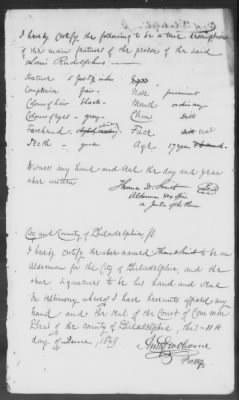 I hereby certify the following to be a true description
of the main features of the person of the said
Louis Rudolphus
Stature 5 feet 7½ inches
Complexion fair Nose prominent
Colour of hair black Mouth ordinary
Colour of eyes grey Chin ditt
Forehead Face
Teeth good Age 17 years
Witness my hand and seal the day and year
above written
Thomas D. Smith
Alderman & ex officio
a Justice of the Peace
City and County of Philadelphia, ss.
I hereby certify the above named Thomas D Smith to be an
Alderman for the City of Philadelphia, and the
above signature to be his hand and seal
In testimony whereof I have hereunto affixed my
hand and the seal of the Court of Common
Pleas of the County of Philadelphia, this 11th
day of June, 1849.
Prothy